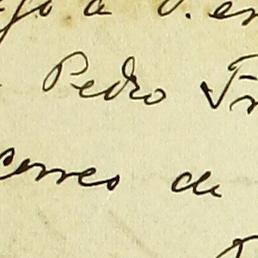 á V. en
Pedro Fr
correo de